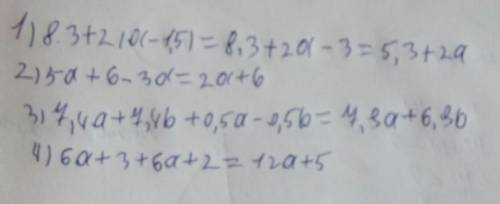 1) 8.3+2(a-1,5)=8,3+2a-3=5,3+2a
2) 5a+6-3a=2a+6
3) 7,4a+7,4b+0,5a-0,5b=7,9a+6,9b
4) 6a+3+6a+2=12a+5